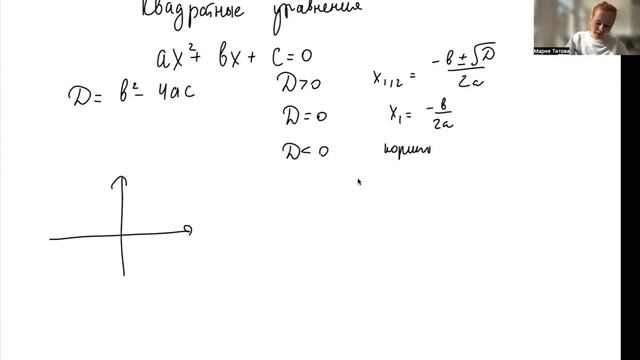 Квадратные уравнения
ax² + bx + c = 0
D = b² - 4ac
D > 0 x₁,₂ = -b ± √D / 2a
D = 0 x₁ = -b / 2a
D < 0
Мария Титова